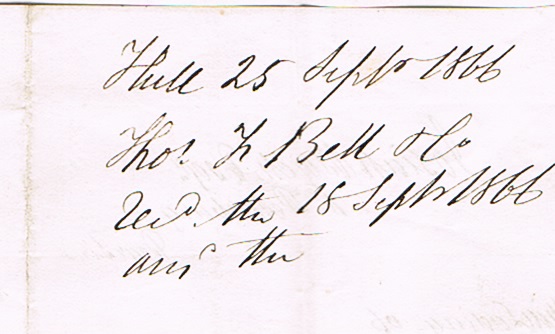 Hull 25 Septr 1866
Thos. W Bell & Co
Recd. the 18 Septr 1866
ansd the